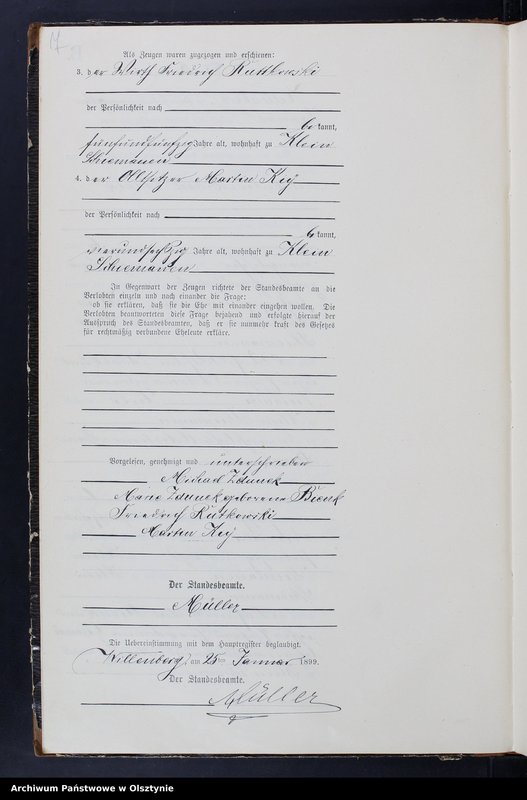 17
Als Zeugen waren zugezogen und erschienen:
3. der Wirth Friedrich Rutkowski
der Persönlichkeit nach
bekannt,
fünfundfünfzig Jahre alt, wohnhaft zu Klein
4. der Altsitzer Marten Key
der Persönlichkeit nach
bekannt,
vierundsechzig Jahre alt, wohnhaft zu Klein
In Gegenwart der Zeugen richtete der Standesbeamte an die
Verlobten einzeln und nach einander die Frage:
ob sie erklären, daß sie die Ehe mit einander eingehen wollen. Die
Verlobten beantworteten diese Frage bejahend und erfolgte hierauf der
Ausspruch des Standesbeamten, daß er sie nunmehr kraft des Gesetzes
für rechtmäßig verbundene Eheleute erkläre.
Vorgelesen, genehmigt und unterschrieben
Michael Zdunek
Marie Zdunek geborene
Friedrich Rutkowski
Marten Key
Der Standesbeamte.
Müller
Die Uebereinstimmung mit dem Hauptregister beglaubigt.
am 25ten Januar 1899.
Der Standesbeamte.
Müller
Archiwum Państwowe w Olsztynie